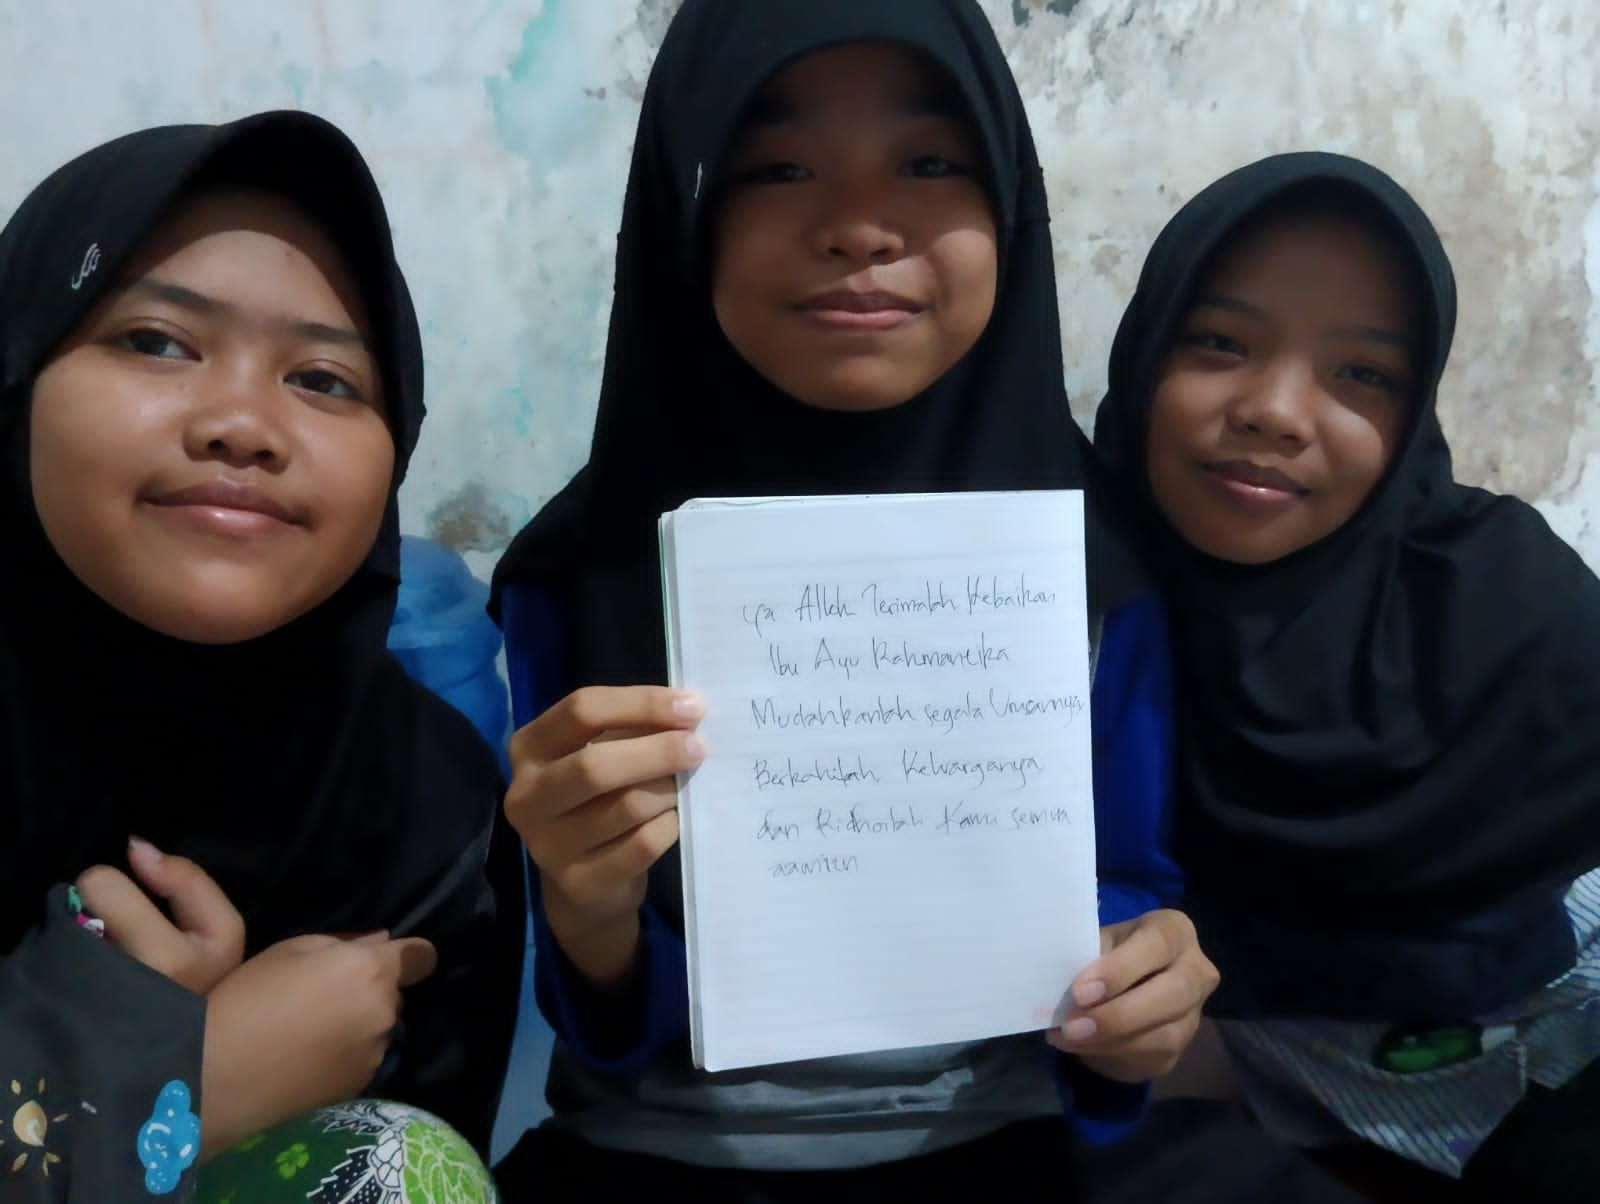 ya Allah Terimalah Kebaikan
Ibu Ayu Rahmaneika
Mudahkanlah segala Urusannya
Berkahilah Keluarganya
dan Ridhoilah Kami semua
aamiien